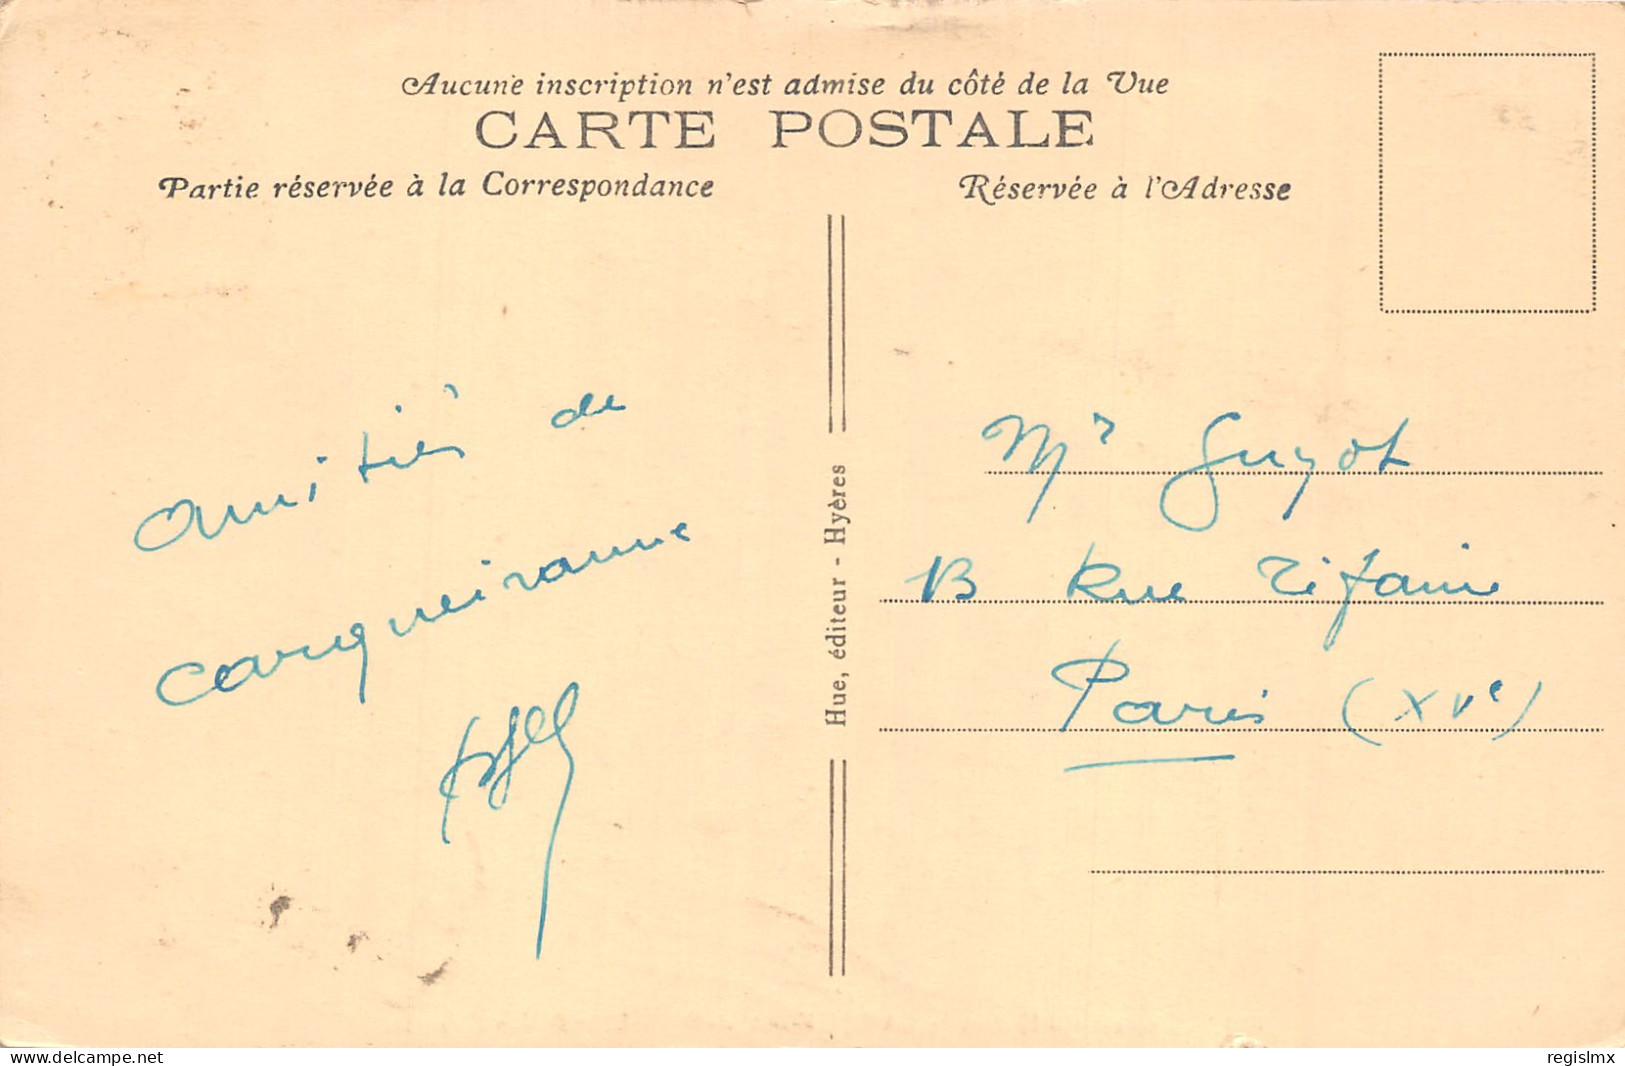 Aucune inscription n'est admise du côté de la Vue
CARTE POSTALE
Partie réservée à la Correspondance
Réservée à l'Adresse
Amitiés de
Carqueiranne
Hue, éditeur - Hyères
Mr Guyot
13 Rue
Paris (XVe)
www.delcampe.net
regislmx